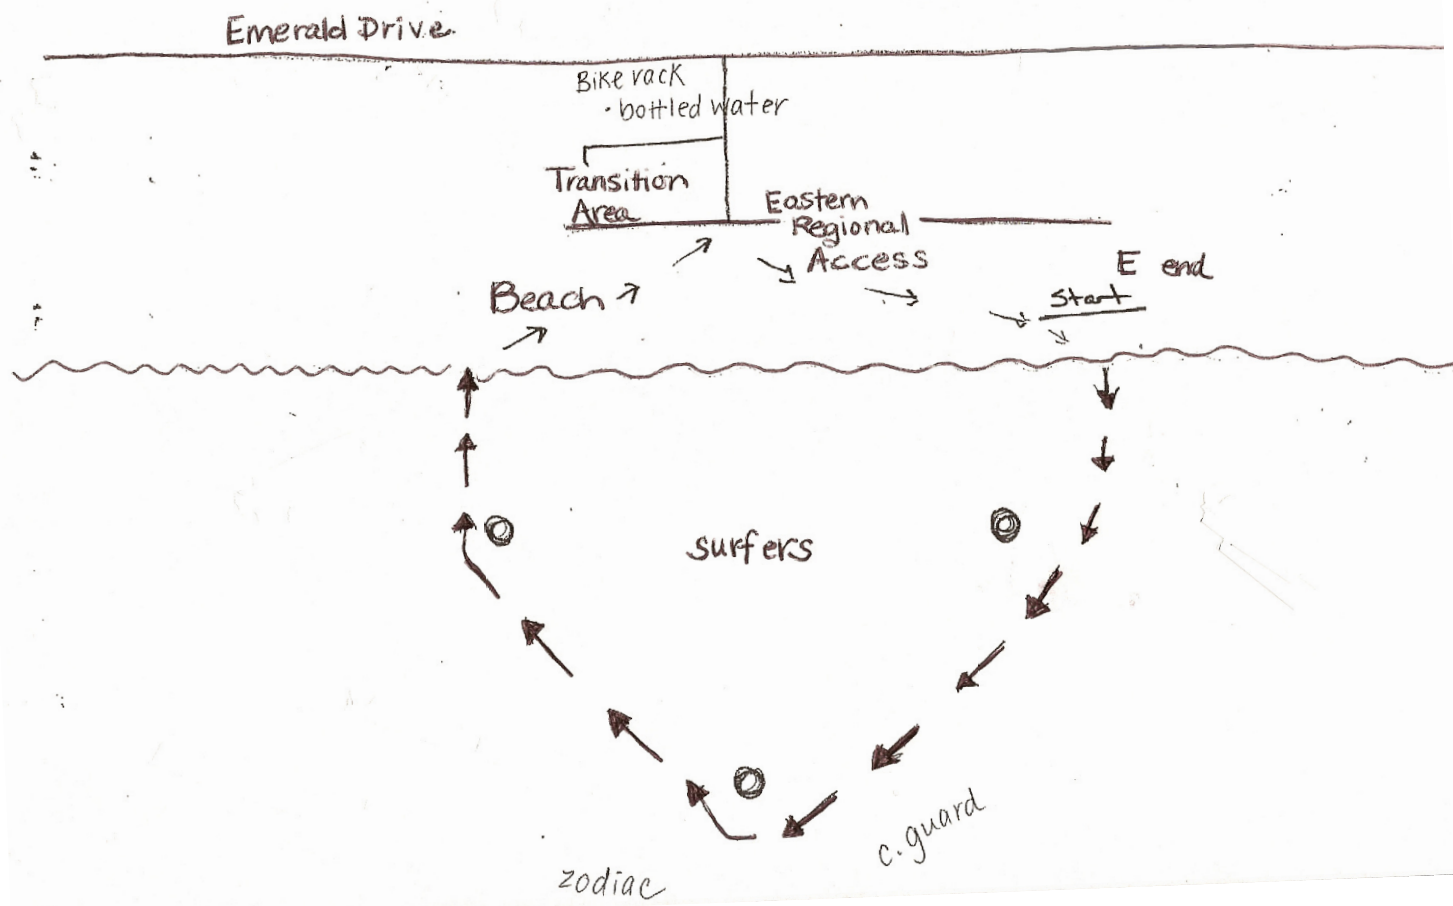 Emerald Drive
Bike rack
· bottled water
Transition
Area
Eastern
Regional
Access
E end
Start
Beach
surfers
c. guard
zodiac